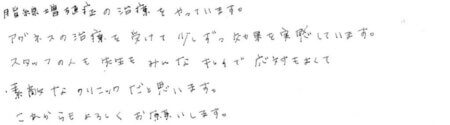 腺増殖症の治療をやっています。
アグネスの治療を受けて少しずつ効果を実感しています。
スタッフの人も先生もみんなキレイで応対もよくて
素敵なクリニックだと思います。
これからもよろしくお願いします。